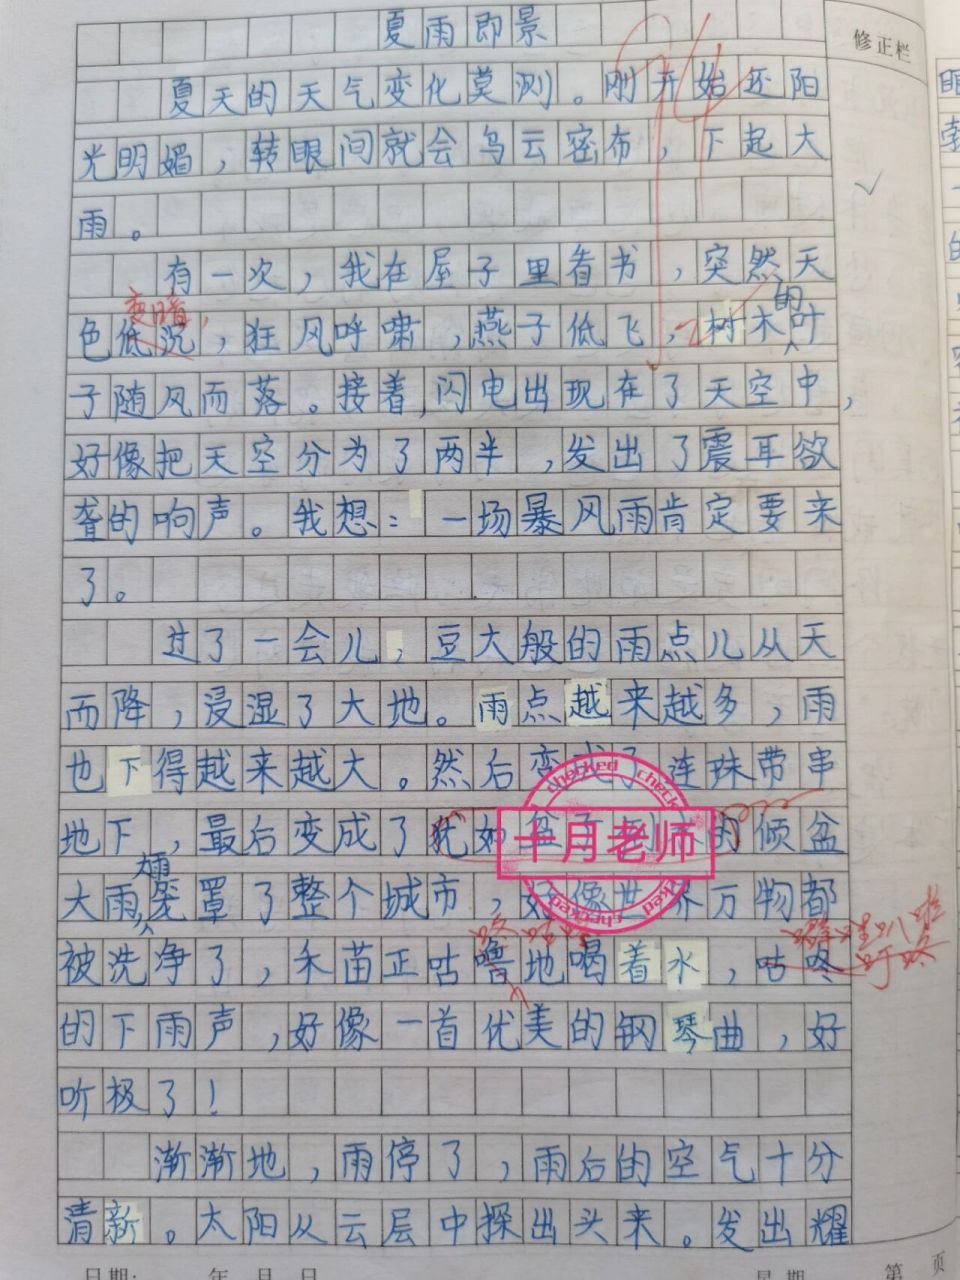 夏雨即景
修正栏
夏天的天气变化莫测。刚开始还阳
光明媚,转眼间就会乌云密布,下起大
雨。
有一次,我在屋子里看书,突然天
变暗,
的
色低沉,狂风呼啸,燕子低飞,树木叶
子随风而落。接着,闪电出现在了天空中,
好像把天空分为了两半,发出了震耳欲
聋的响声。我想:一场暴风雨肯定要来
了。
过了一会儿,豆大般的雨点儿从天
而降,浸湿了大地。雨点越来越多,雨
也下得越来越大。然后变成了连珠带串
地下,最后变成了犹如盆子倒的倾盆
大雨
大雨,笼罩了整个城市,好像世界万物都
被洗净了,禾苗正咕噜地喝着水,咕咚
的下雨声,好像一首优美的钢琴曲,好
听极了!
渐渐地,雨停了,雨后的空气十分
清新。太阳从云层中探出头来。发出耀
checked
十月老师
checked
日期: 年 月 日
星期 第 页